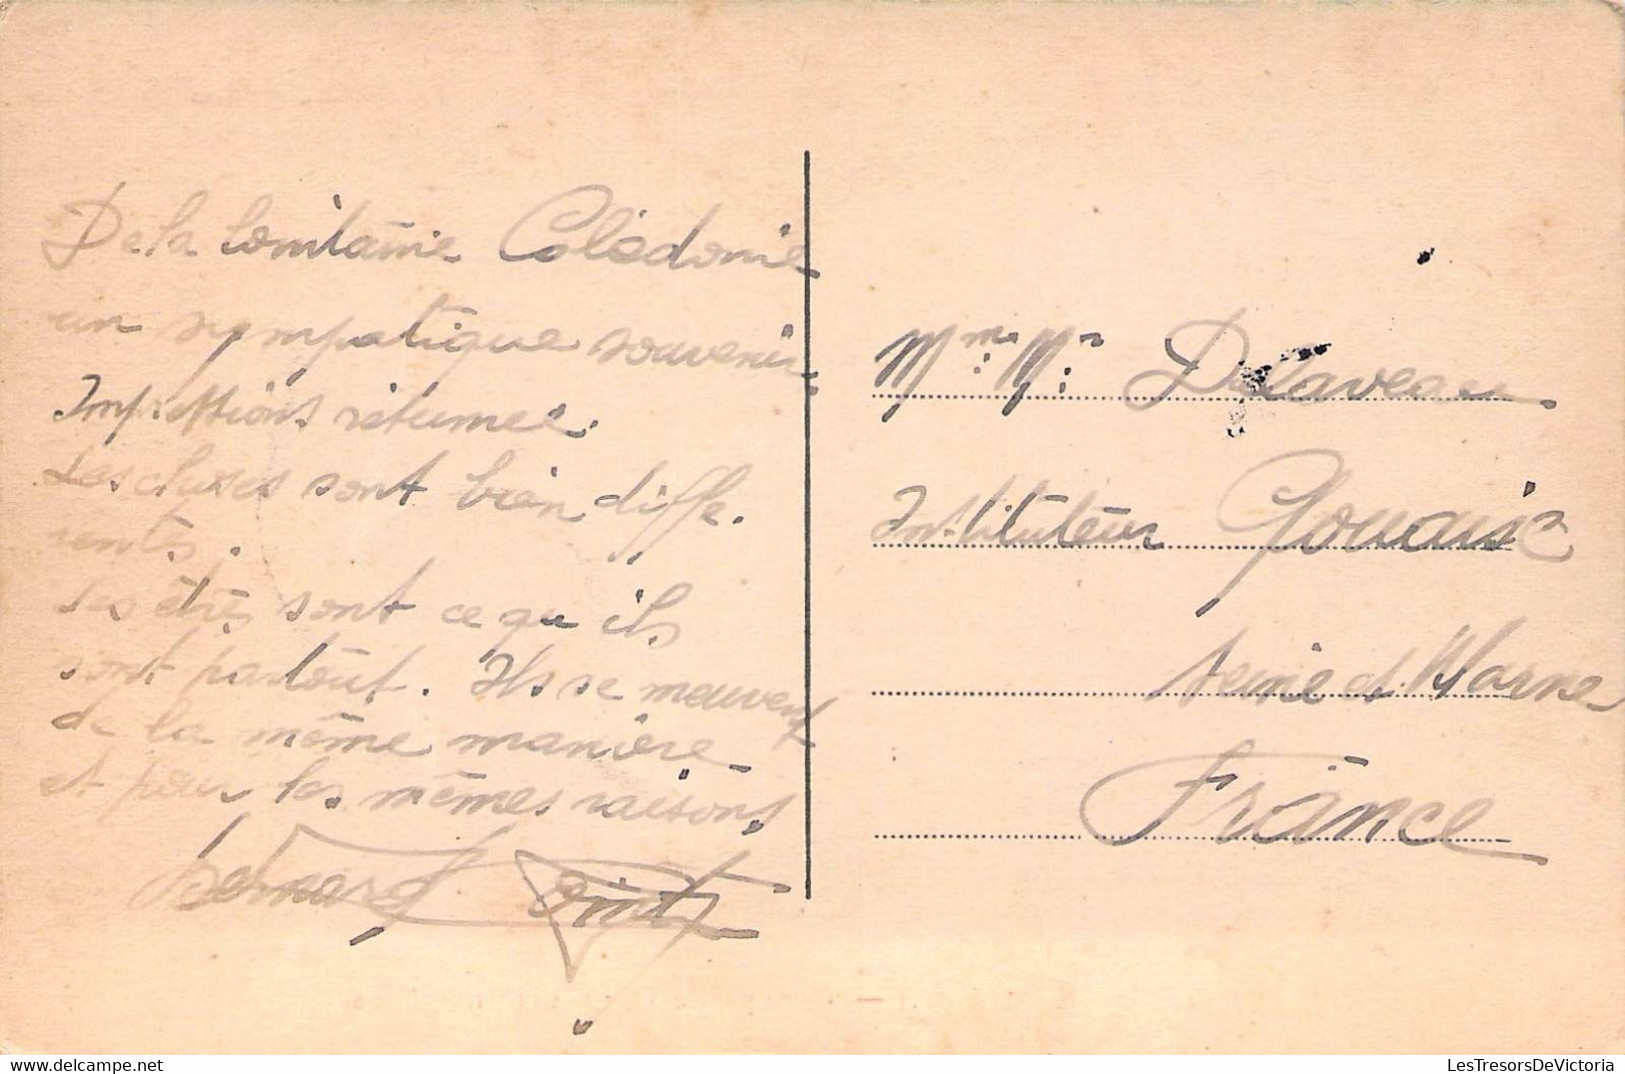 De la lointaine Calédonie
un sympatique souvenir
Impressions résumée.
Les choses sont bien diffé-
rentes.
Les êtres sont ce qu'ils
sont partout. Ils se meuvent
de la même manière
et pour les mêmes raisons.
Bernard
Mme: Mr: Delaveau
Instituteur Gouaix
Seine et Marne
France
LesTresorsDeVictoria